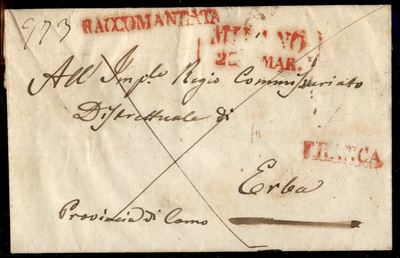 973
RACCOMANDATA
MILANO
25 MAR.
All' Imp.le Regio Commissariato
Distrettuale di
FRANCA
Erba
Provincia di Como